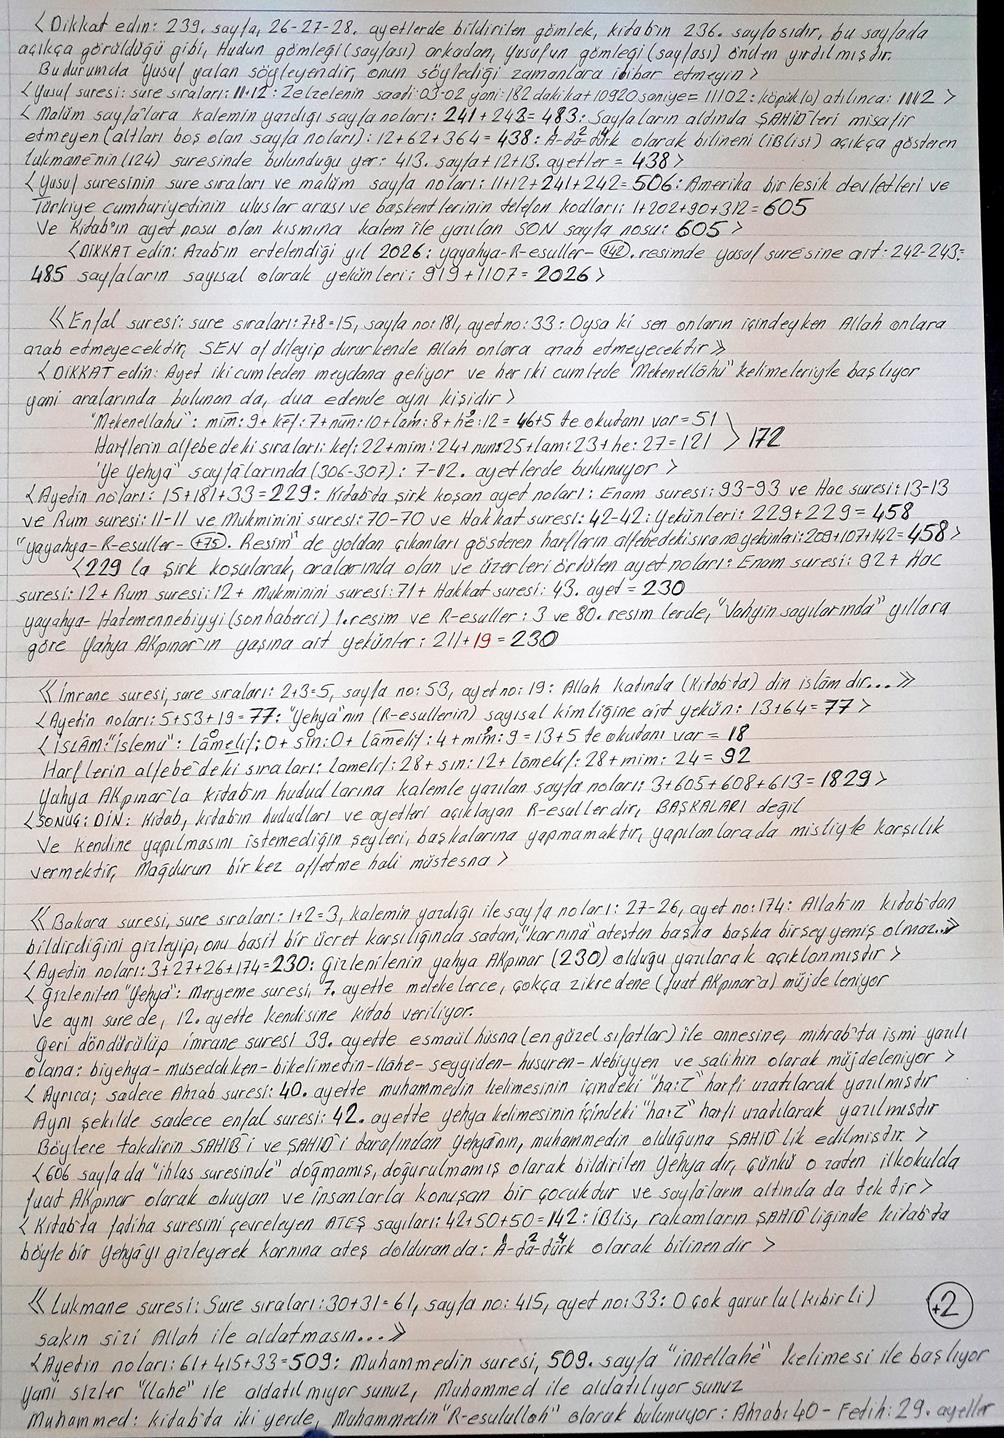 <Dikkat edin: 239. sayfa, 26-27-28. ayetlerde bildirilen gömlek, kitab'ın 236. sayfasıdır, bu sayfada
açıkça görüldüğü gibi, Hudun gömleği (sayfası) arkadan, Yusuf'un gömleği (sayfası) önden yırtılmıştır.
Bu durumda Yusuf yalan söyleyendir, onun söylediği zamanlara itibar etmeyin>
<Yusuf suresi: sure sıraları: 11-12: Zelzelenin saati: 03-02 yani: 182 dakika+10920 saniye= 11102: köpük(o) atılınca: 1112>
<Malüm sayfa'lara kalemin yazdığı sayfa noları: 241+242= 483: Sayfaların altında ŞAHİD'leri misafir
etmeyen (altları boş olan sayfa noları): 12+62+364= 438: A-da-türk olarak bilineni (iBlisi) açıkça gösteren
Lukmane'nin (124) suresinde bulunduğu yer: 413. sayfa+12+13. ayetler = 438>
<Yusuf suresinin sure sıraları ve malüm sayfa noları: 11+12+241+242= 506: Amerika birlesik devletleri ve
Türkiye cumhuriyetinin uluslar arası ve başkentlerinin telefon kodları: 1+202+90+312= 605
Ve Kitab'ın ayet nosu olan kısmına kalem ile yazılan SON sayfa nosu: 605>
<DİKKAT edin: Azab'ın ertelendiği yıl 2026: yayahya-R-esuller- +42. resimde yusuf suresine ait: 242-243=
485 sayfaların sayısal olarak yekünleri: 919+1107= 2026>
<<Enfal suresi: sure sıraları: 7+8=15, sayfa no: 181, ayet no: 33: Oysa ki sen onların içindeyken Allah onlara
azab etmeyecektir, SEN af dileyip dururkende Allah onlara azab etmeyecektir>>
<DİKKAT edin: Ayet iki cumleden meydana geliyor ve her iki cumlede "Mekenellâhu" kelimeleriyle başlıyor
yani aralarında bulunan da, dua edende aynı kişidir>
"Mekenellahu": mim: 9+ kef: 7+ nün: 10+ lam: 8+ he: 12 = 46+5 te okutanı var = 51
Harflerin alfebedeki sıraları: kef: 22+mim: 24+ nun: 25+ lam: 23+ he: 27 = 121 > 172
'Ye Yehya" sayfalarında (306-307): 7-12. ayetlerde bulunuyor>
<Ayetin noları: 15+181+33= 229: Kitab'da şirk koşan ayet noları: Enam suresi: 93-93 ve Hac suresi: 13-13
ve Rum suresi: 11-11 ve Mukminini suresi: 70-70 ve Hakkat suresi: 42-42: Yekünleri: 229+229= 458
"yayahya-R-esuller- +75. Resim" de yoldan çıkanları gösteren harflerin alfebedeki sıra no yekünları: 209+107+142= 458>
<229 la şirk koşularak, aralarında olan ve üzerleri örtülen ayet noları: Enam suresi: 92+ Hac
suresi: 12+ Rum suresi: 12+ Mukminini suresi: 71+ Hakkat suresi: 43. ayet= 230
yayahya- Hatemennebiyyi (son haberci) 1. resim ve R-esuller: 3 ve 80. resim lerde, "Vahyin sayılarında" yıllara
göre Yahya AKpınar'ın yaşına ait yekünler: 211+19= 230
<<imrane suresi, sure sıraları: 2+3=5, sayfa no: 53, ayet no: 19: Allah katında (kitab'ta) din islâm dır...>>
<Ayetin noları: 5+53+19= 77: "Yehya"nın (R-esullerin) sayısal kimliğine ait yekün: 13+64= 77>
<iSLAM: "islemu": lâmelif: 0+ sin: 0+ lâmelif: 4+ mim: 9 = 13+5 te okutanı var = 18
Harflerin alfebe'deki sıraları: lamelif: 28+ sın: 12+ lâmelif: 28+ mim: 24 = 92
Yahya AKpınar'la kitabın hududlarına kalemle yazılan sayfa noları: 3+605+608+613= 1829>
<SONUÇ: DİN: Kitab, kitab'ın hududları ve ayetleri açıklayan R-esullerdir, BAŞKALARI değil
Ve kendine yapılmasını istemediğin şeyleri, başkalarına yapmamaktır, yapılanlarada misliyle karşılık
vermektir, Mağdurun bir kez affetme hali müstesna>
<<Bakara suresi, sure sıraları: 1+2=3, kalemin yazdığı ile sayfa noları: 27-26, ayet no: 174: Allah'ın kitab'dan
bildirdiğini gizleyip, onu basit bir ücret karşılığında satan, "karnına" ateşten başka başka birşey yemiş olmaz..>>
<Ayetin noları: 3+27+26+174= 230: Gizlenilenin yahya AKpınar (230) olduğu yazılarak açıklanmıştır>
<Gizlenilen "Yehya": Meryeme suresi, 7. ayette melekelerce, çokça zikredene (fuat AKpınar'a) müjdeleniyor
Ve aynı surede, 12. ayette kendisine kitab veriliyor.
Geri döndürülüp imrane suresi 39. ayette esmaül hüsna (en güzel sıfatlar) ile annesine, mihrab'ta ismi yazılı
olana: biyehya- museddıken- bikelimetin-llâhe- seyyiden- husuren- Nebiyyen ve salihin olarak müjdeleniyor>
<Ayrıca; sadece Ahzab suresi: 40. ayette muhammedin kelimesinin içindeki "ha: ح" harfi uzatılarak yazılmıştır
Aynı şekilde sadece enfal suresi: 42. ayette yehya kelimesinin içindeki "ha: ح" harfi uzadılarak yazılmıstır
Böylece takdirin SAHİB'i ve ŞAHİD'i tarafından Yehya'nın, muhammedin olduğuna ŞAHİD'lik edilmiştir.>
<606 sayfada "ihlas suresinde" doğmamış, doğurulmamış olarak bildirilen Yehya dır, çünkü o zaten ilkokulda
fuat AKpınar olarak okuyan ve insanlarla konuşan bir çocuktur ve sayfa'ların altında da tektir>
<Kitab'ta fatiha suresini çevreleyen ATEŞ sayıları: 42+50+50= 142: iBlis, rakamların ŞAHİD'liğinde kitab'ta
böyle bir Yehya'yı gizleyerek karnına ateş dolduran da: A-da-türk olarak bilinendir>
<<Lukmane suresi: Sure sıraları: 30+31=61, sayfa no: 415, ayet no: 33: O çok gururlu (kibirli)
sakın sizi Allah ile aldatmasın...>>
+2
<Ayetin noları: 61+415+33=509: Muhammedin suresi, 509. sayfa "innellahe" kelimesi ile başlıyor
yani sizler "llahe" ile aldatılmıyorsunuz, Muhammed ile aldatılıyorsunuz
Muhammed: kitab'ta iki yerde, Muhammedin "R-esulullah" olarak bulunuyor: Ahzab: 40- Fetih: 29. ayetler